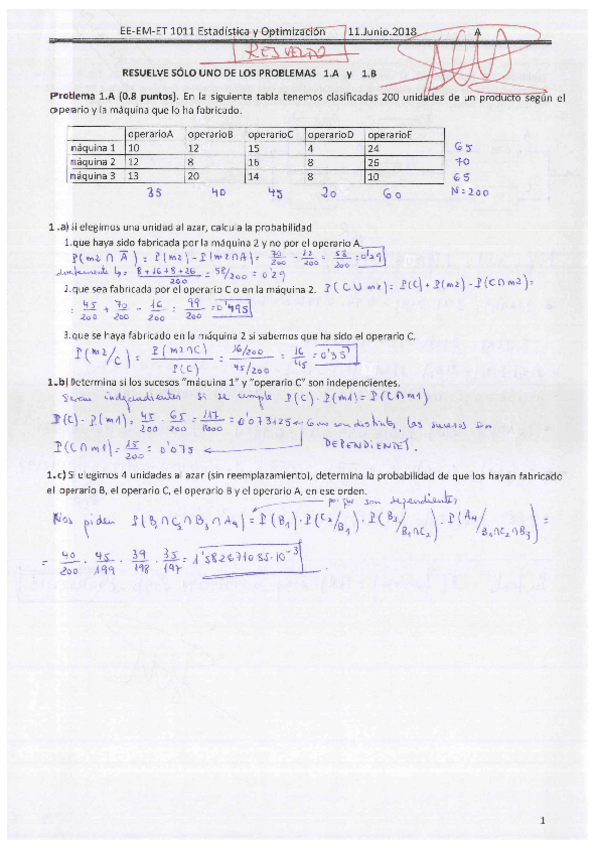 EE-EM-ET 1011 Estadística y Optimización 11.Junio.2018 A
RESUELTO
RESUELVE SÓLO UNO DE LOS PROBLEMAS 1.A y 1.B
Problema 1.A (0.8 puntos). En la siguiente tabla tenemos clasificadas 200 unidades de un producto según el
operario y la máquina que lo ha fabricado.
operarioA operarioB operarioC operarioD operarioE
máquina 1 10 12 15 4 24 65
máquina 2 12 8 16 8 26 70
máquina 3 13 20 14 8 10 65
35 40 45 20 60 N=200
1.a) Si elegimos una unidad al azar, calcula la probabilidad
1.que haya sido fabricada por la máquina 2 y no por el operario A.
P(m2 ∩ Ā) = P(m2) - P(m2∩A) = 70/200 - 12/200 = 58/200 = 0'29
directamente 8+16+8+26/200 = 58/200 = 0'29
2.que sea fabricada por el operario C o en la máquina 2. P(C∪m2) = P(C) + P(m2) - P(C∩m2) =
= 45/200 + 70/200 - 16/200 = 99/200 = 0'495
3.que se haya fabricado en la máquina 2 si sabemos que ha sido el operario C.
P(m2/C) = P(m2∩C)/P(C) = 16/200/45/200 = 16/45 = 0'35
1.b) Determina si los sucesos "máquina 1" y "operario C" son independientes.
Serán independientes si se cumple P(C)·P(m1) = P(C∩m1)
P(C)·P(m1) = 45/200 · 65/200 = 117/1600 = 0'073125 Como son distintos, los sucesos son
P(C∩m1) = 15/200 = 0'075 DEPENDIENTES.
1.c) Si elegimos 4 unidades al azar (sin reemplazamiento), determina la probabilidad de que los hayan fabricado
el operario B, el operario C, el operario B y el operario A, en ese orden.
porque son dependientes
Nos piden P(B₁∩C₂∩B₃∩A₄) = P(B₁)·P(C₂/B₁)·P(B₃/B₁∩C₂)·P(A₄/B₁∩C₂∩B₃) =
= 40/200 · 45/199 · 39/198 · 35/197 = 1'582671035·10⁻³
1